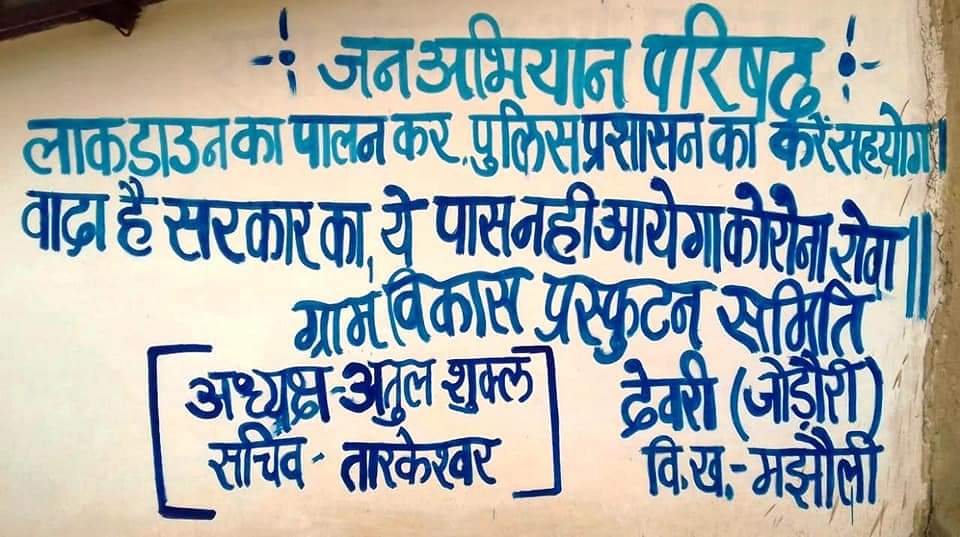 जन अभियान परिषद
लाकडाउन का पालन कर, पुलिस प्रशासन का करें सहयोग।
वादा है सरकार का, ये पास नही आयेगा कोरोना रोग॥
ग्राम विकास प्रस्फुटन समिति
अध्यक्ष - अतुल शुक्ल देवरी (जोड़ौरी)
सचिव - तारकेश्वर वि.ख.- मझौली